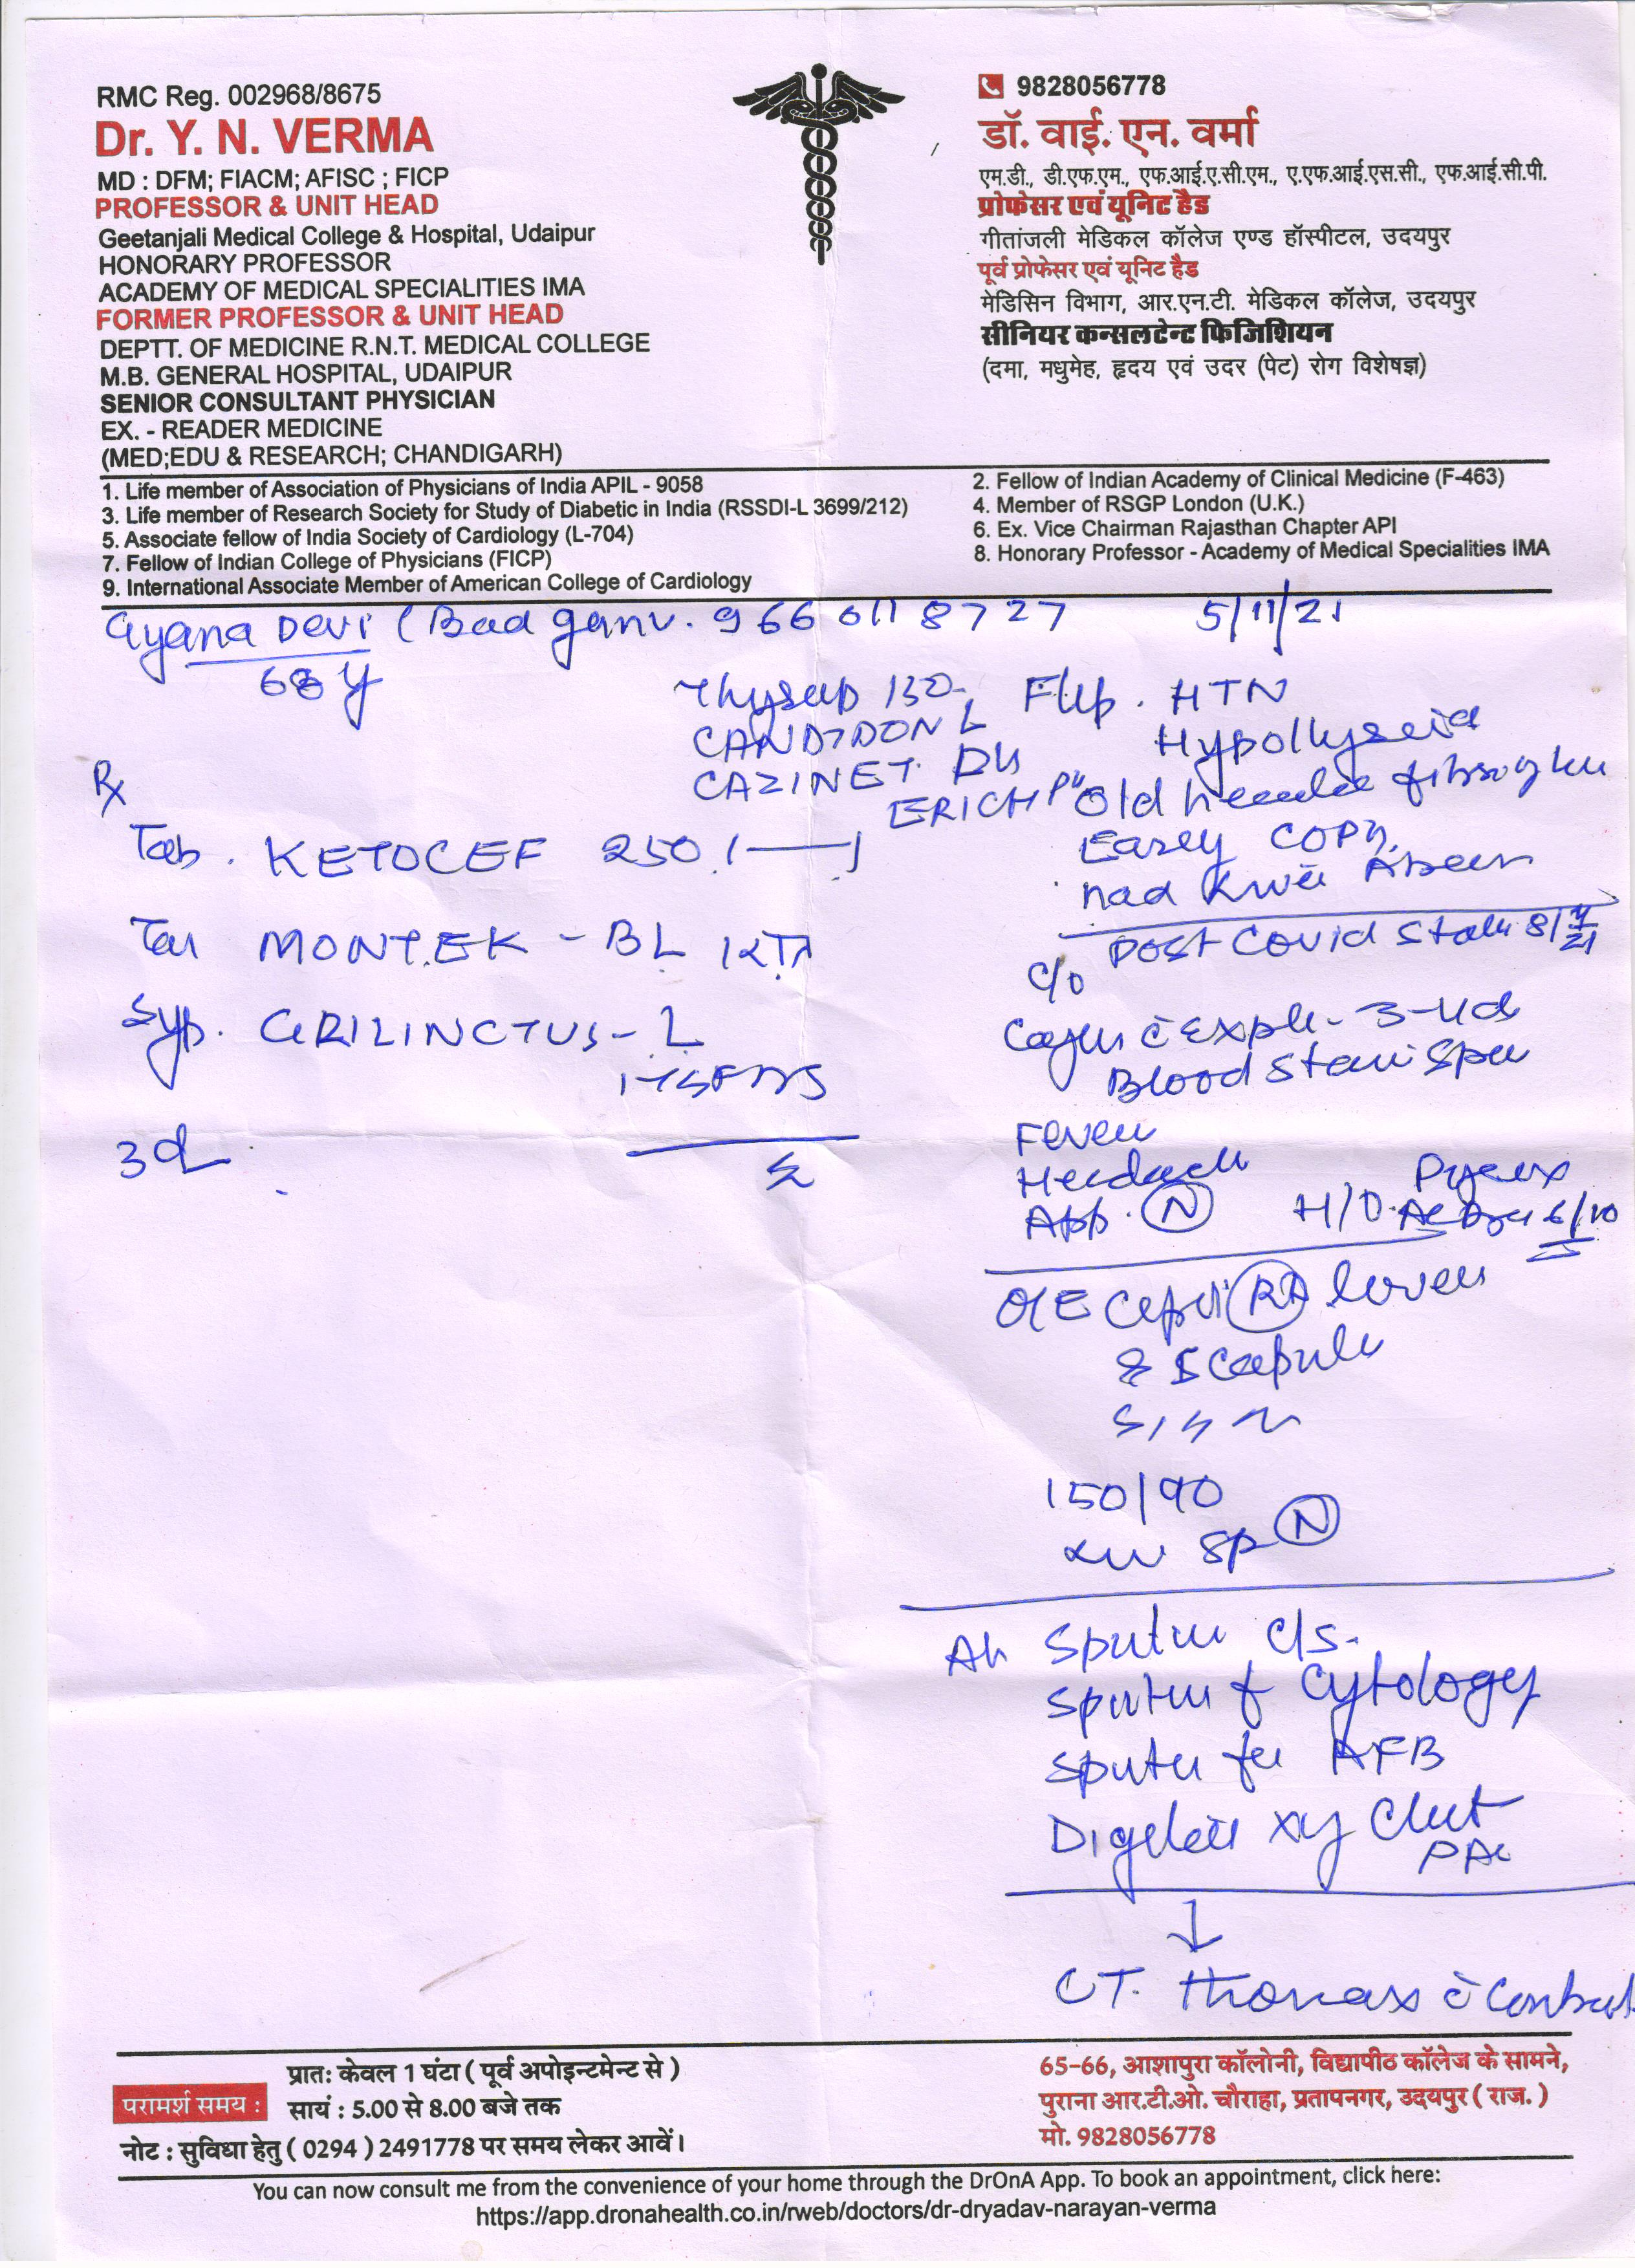 RMC Reg. 002968/8675
Dr. Y. N. VERMA
MD : DFM; FIACM; AFISC ; FICP
PROFESSOR & UNIT HEAD
Geetanjali Medical College & Hospital, Udaipur
HONORARY PROFESSOR
ACADEMY OF MEDICAL SPECIALITIES IMA
FORMER PROFESSOR & UNIT HEAD
DEPTT. OF MEDICINE R.N.T. MEDICAL COLLEGE
M.B. GENERAL HOSPITAL, UDAIPUR
SENIOR CONSULTANT PHYSICIAN
EX. - READER MEDICINE
(MED;EDU & RESEARCH; CHANDIGARH)
9828056778
डॉ. वाई. एन. वर्मा
एम.डी., डी.एफ.एम., एफ.आई.ए.सी.एम., ए.एफ.आई.एस.सी., एफ.आई.सी.पी.
प्रोफेसर एवं यूनिट हैड
गीतांजली मेडिकल कॉलेज एण्ड हॉस्पीटल, उदयपुर
पूर्व प्रोफेसर एवं यूनिट हैड
मेडिसिन विभाग, आर.एन.टी. मेडिकल कॉलेज, उदयपुर
सीनियर कन्सलटेन्ट फिजिशियन
(दमा, मधुमेह, हृदय एवं उदर (पेट) रोग विशेषज्ञ)
1. Life member of Association of Physicians of India APIL - 9058
2. Fellow of Indian Academy of Clinical Medicine (F-463)
3. Life member of Research Society for Study of Diabetic in India (RSSDI-L 3699/212)
4. Member of RSGP London (U.K.)
5. Associate fellow of India Society of Cardiology (L-704)
6. Ex. Vice Chairman Rajasthan Chapter API
7. Fellow of Indian College of Physicians (FICP)
8. Honorary Professor - Academy of Medical Specialities IMA
9. International Associate Member of American College of Cardiology
Gyana Devi (Bad ganv. 9660118727 5/11/21
68 y
130
CANDIDON L
CAZINET
ERICH
Rx
Tab. KETOCEF 250 1——1
MONTEK - BL
Syp. GRILINCTUS - L
3d
HTN
Old
Early COPD
Post Covid 8/4/21
c/o
3-4 d
Blood Stain
Fever
Headach
App. (N)
H/O
O/E lower
Scapula
150/90
(N)
Sputum c/s.
Sputum f Cytology
Sputum for AFB
Digital Xray Chest
PA
↓
CT. Thorax c̄ Contrast
परामर्श समय :
प्रातः केवल 1 घंटा ( पूर्व अपोइन्टमेन्ट से )
सायं : 5.00 से 8.00 बजे तक
नोट : सुविधा हेतु ( 0294 ) 2491778 पर समय लेकर आवें।
65-66, आशापुरा कॉलोनी, विद्यापीठ कॉलेज के सामने,
पुराना आर.टी.ओ. चौराहा, प्रतापनगर, उदयपुर ( राज. )
मो. 9828056778
You can now consult me from the convenience of your home through the DrOnA App. To book an appointment, click here:
https://app.dronahealth.co.in/rweb/doctors/dr-dryadav-narayan-verma